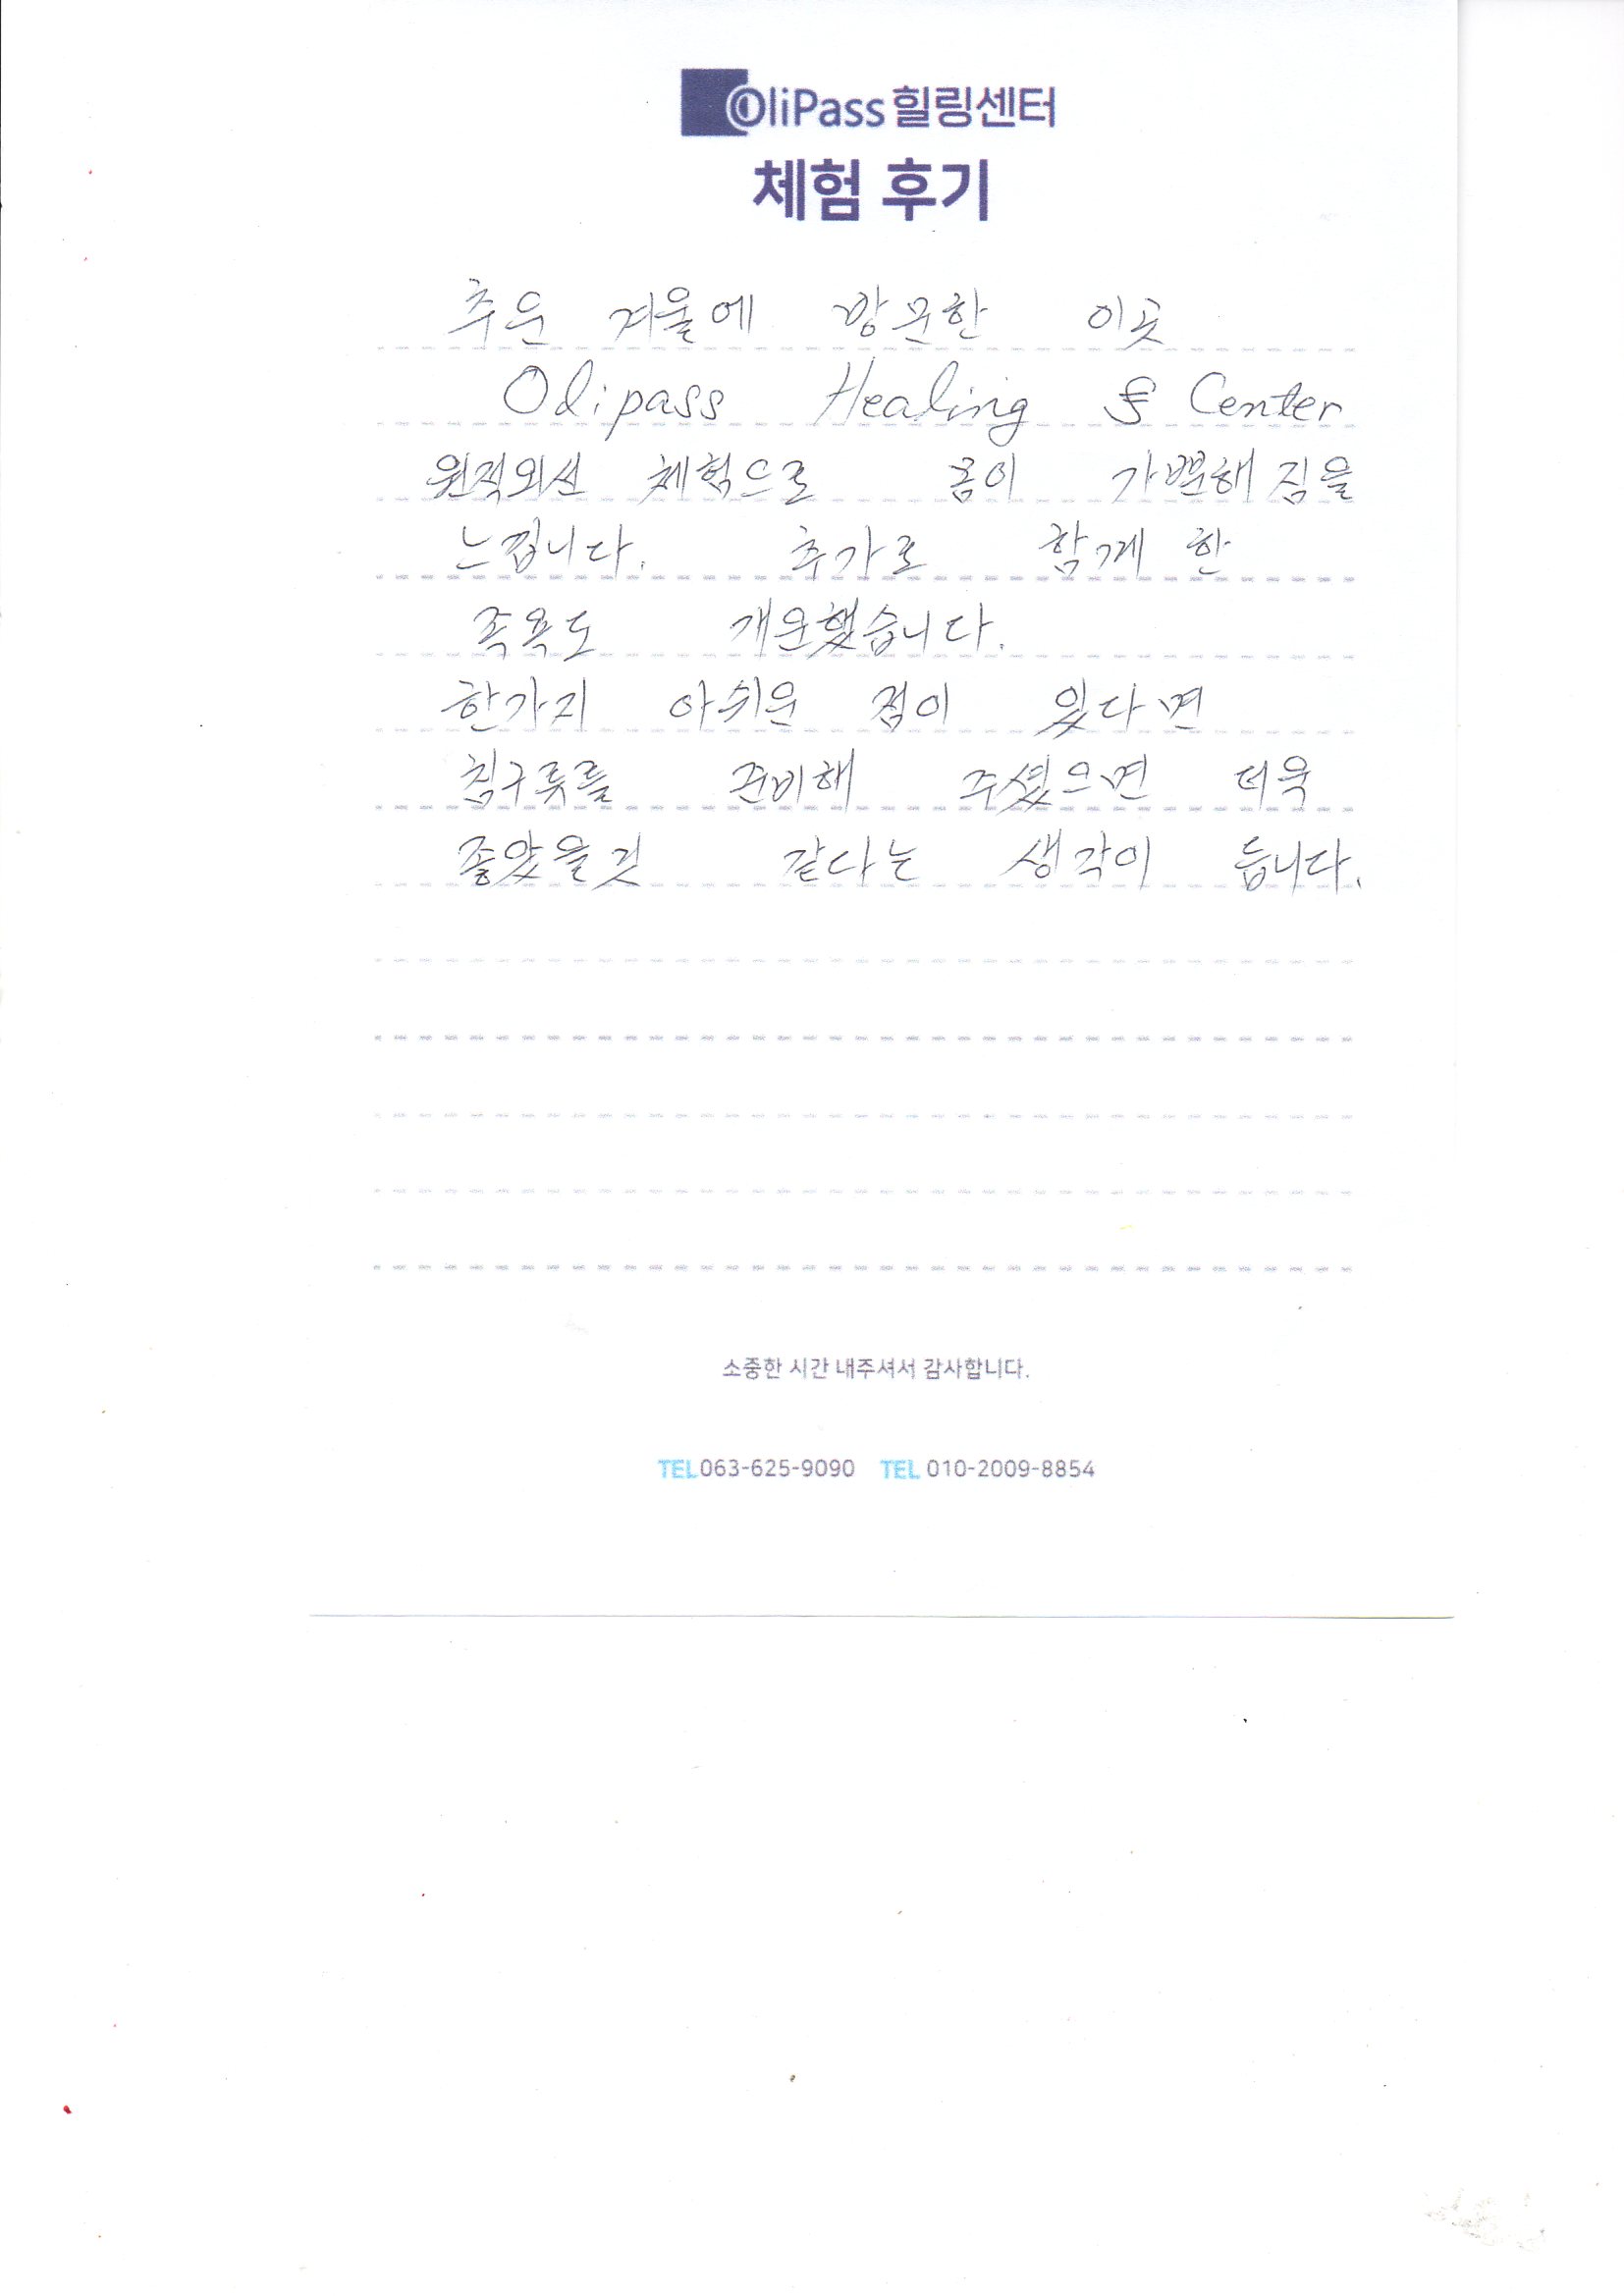 OliPass 힐링센터
체험 후기
추운 겨울에 방문한 이곳
Olipass Healing Center
원적외선 체험으로 몸이 가뿐해 짐을
느낍니다. 추가로 함께 한
족욕도 개운했습니다.
한가지 아쉬운 점이 있다면
침구류를 준비해 주셨으면 더욱
좋았을것 같다는 생각이 듭니다.
소중한 시간 내주셔서 감사합니다.
TEL 063-625-9090 TEL 010-2009-8854